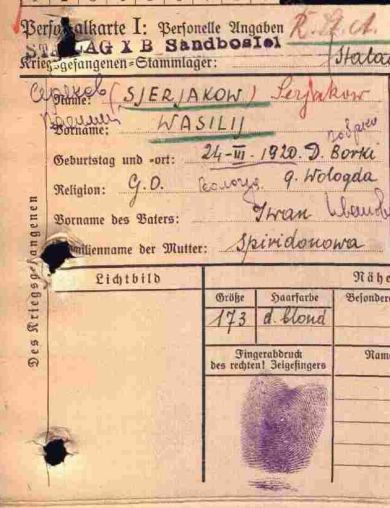 Personalkarte I: Personelle Angaben
STALAG X B Sandbostel
Kriegsgefangenen-Stammlager:
Name: (SJERJAKOW) Serjakow
Vorname: WASILIJ
Geburtstag und -ort: 24-III. 1920. D. Borki
Religion: G.O. G. Wologda
Vorname des Vaters: Iwan
Familienname der Mutter: Spiridonowa
Des Kriegsgefangenen
Lichtbild
Nähe
Größe Haarfarbe Besonder
173 d. blond
Fingerabdruck Nam
des rechten! Zeigefingers